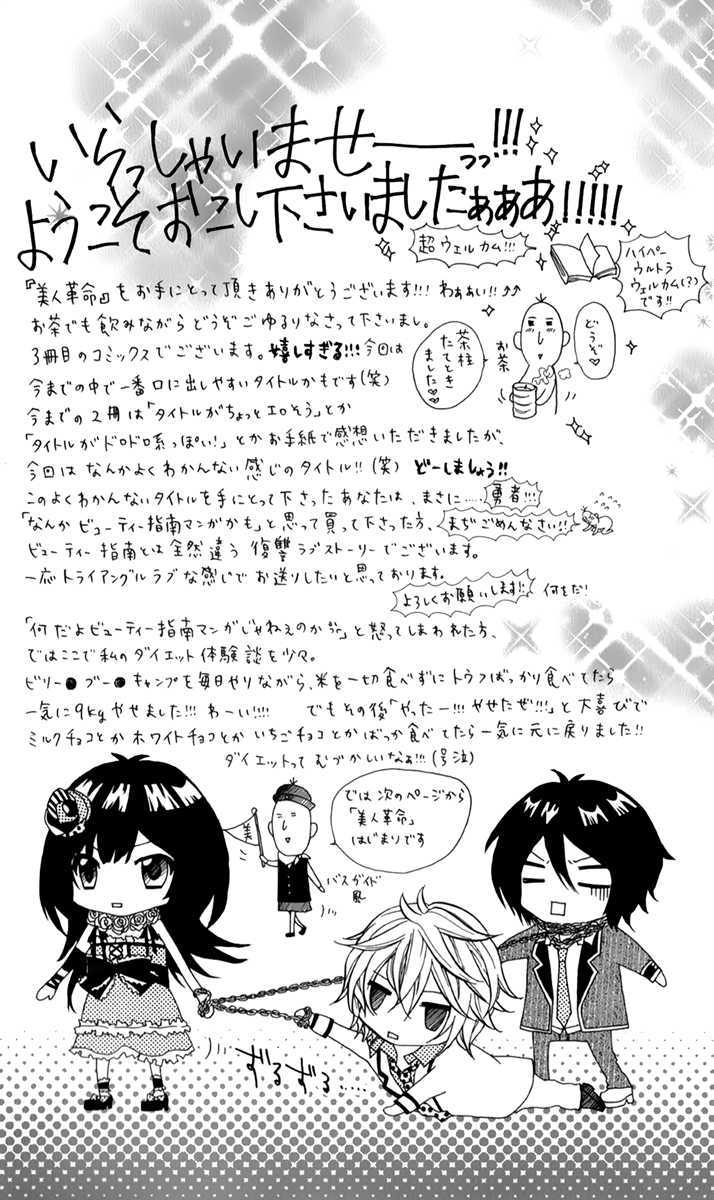 いらっしゃいませーーっっ!!!
ようこそおこし下さいましたぁぁあ!!!!!
超ウェルカム!!!
ハイパー
ウルトラ
ウェルカム(?)
です!!
『美人革命』をお手にとって頂きありがとうございます!!! わぁぁい!!
お茶でも飲みながらどうぞごゆるりなさって下さいまし。
どうぞ♡
お茶
茶柱
たてとき
ました♡
3冊目のコミックスでございます。嬉しすぎる!!! 今回は
今までの中で一番口に出しやすいタイトルかもです(笑)
今までの2冊は「タイトルがちょっとエロそう」とか
「タイトルがドロドロ系っぽい!」とかお手紙で感想いただきましたが、
今回はなんかよくわかんない感じのタイトル!!(笑) どーしましょう!!
このよくわかんないタイトルを手にとって下さったあなたは、まさに……勇者!!!
「なんかビューティー指南マンガかも」と思って買って下さった方、まぢごめんなさい!!
ビューティー指南とは全然違う復讐ラブストーリーでございます。
一応トライアングルラブな感じでお送りしたいと思っております。
よろしくお願いします!! 何をだ!
「何だよビューティー指南マンガじゃねぇのかよ」と怒ってしまわれた方、
ではここで私のダイエット体験談を少々。
ビリー●ブー●キャンプを毎日やりながら、米を一切食べずにトウフばっかり食べてたら
一気に9kgやせました!!! わーい!!!! でもその後「やったー!!! やせたぜ!!!」と大喜びで
ミルクチョコとかホワイトチョコとかいちごチョコとかばっか食べてたら一気に元に戻りました!!
ダイエットってむづかしいなぁ!!!(号泣)
では次のページから
「美人革命」
はじまりです
美
バスガイド
風
ずるずる……